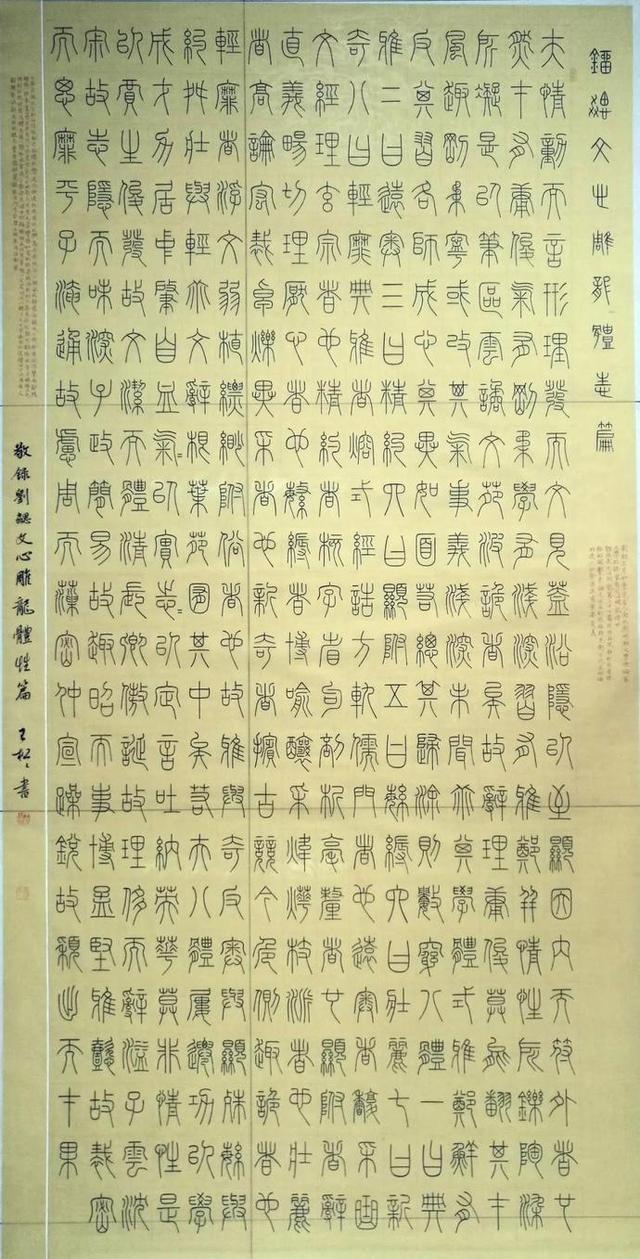 劉勰文心雕龍體性篇
夫情動而言形理發而文見蓋沿隱以至顯因內而符外者也
然才有庸俊氣有剛柔學有淺深習有雅鄭並情性所鑠陶染
所凝是以筆區雲譎文苑波詭者矣故辭理庸俊莫能翻其才
風趣剛柔寧或改其氣事義淺深未聞乖其學體式雅鄭鮮有
反其習各師成心其異如面若總其歸塗則數窮八體一曰典
雅二曰遠奧三曰精約四曰顯附五曰繁縟六曰壯麗七曰新
奇八曰輕靡典雅者熔式經誥方軌儒門者也遠奧者馥采典
文經理玄宗者也精約者核字省句剖析毫釐者也顯附者辭
直義暢切理厭心者也繁縟者博喻釀采煒燁枝派者也壯麗
者高論宏裁卓爍異采者也新奇者擯古競今危側趣詭者也
輕靡者浮文弱植縹緲附俗者也故雅與奇反奧與顯殊繁與
約舛壯與輕乖文辭根葉苑囿其中矣若夫八體屢遷功以學
成才力居中肇自血氣〻以實志〻以定言吐納英華莫非情性是
以賈生俊發故文潔而體清長卿傲誕故理侈而辭溢子雲沈
寂故志隱而味深子政簡易故趣昭而事博孟堅雅懿故裁密
而思靡平子淹通故慮周而藻密仲宣躁銳故穎出而才果
敬錄劉勰文心雕龍體性篇 王松書